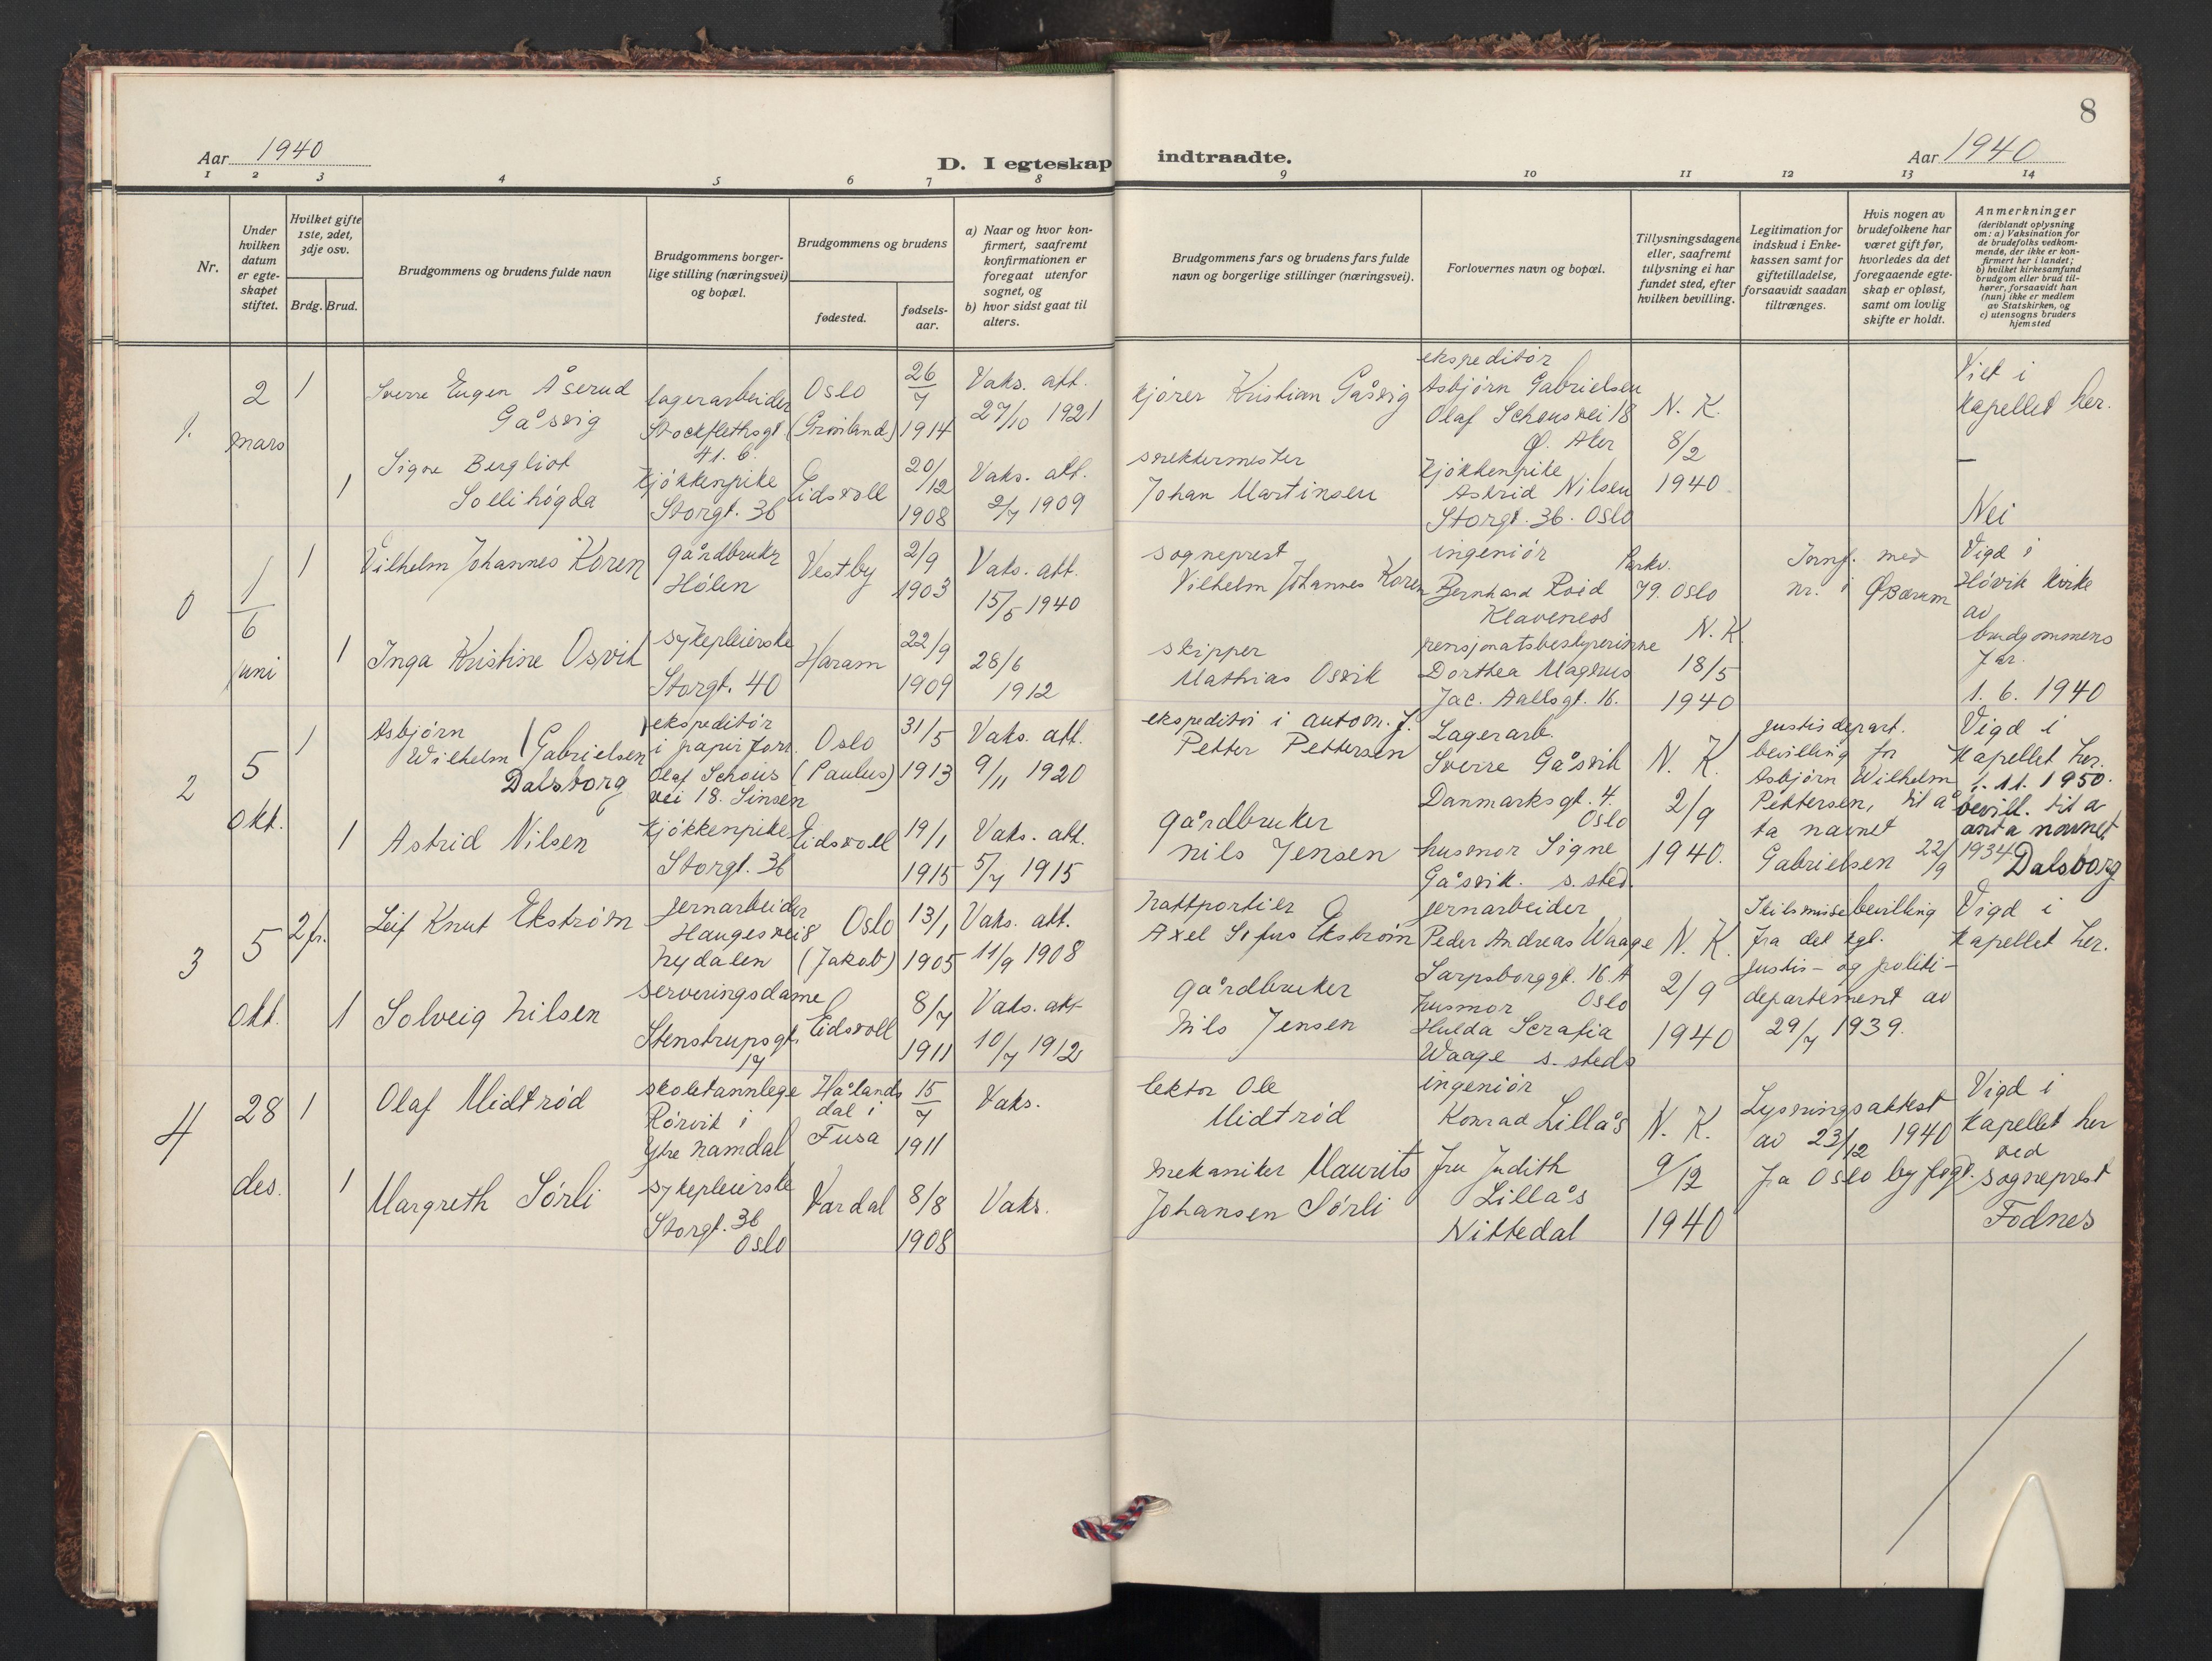 8
Aar 1940
D. I egteskap indtraadte.
Aar 1940
1 2 3 4 5 6 7 8 9 10 11 12 13 14
Nr.
Under hvilken datum er egte-skapet stiftet.
Hvilket gifte 1ste, 2det, 3dje osv.
Brdg. Brud.
Brudgommens og brudens fulde navn
Brudgommens borger-lige stilling (næringsvei) og bopæl.
Brudgommens og brudens
fødested.
fødsels-aar.
a) Naar og hvor kon-firmert, saafremt konfirmationen er foregaat utenfor sognet, og
b) hvor sidst gaat til alters.
Brudgommens fars og brudens fars fulde navn og borgerlige stillinger (næringsvei).
Forlovernes navn og bopæl.
Tillysningsdagene eller, saafremt tillysning ei har fundet sted, efter hvilken bevilling.
Legitimation for indskud i Enke-kassen samt for giftetilladelse, forsaavidt saadan tiltrænges.
Hvis nogen av brudefolkene har været gift før, hvorledes da det foregaaende egte-skap er opløst, samt om lovlig skifte er holdt.
Anmerkninger
(deriblandt oplysning om: a) Vaksination for de brudefolks vedkom-mende, der ikke er kon-firmert her i landet; b) hvilket kirkesamfund brudgom eller brud til-hører, forsaavidt han (hun) ikke er medlem av Statskirken, og c) utensogns bruders hjemsted
1.
2 mars
1
Sverre Eugen Åserud
Gåsvig
lagerarbeider
Stockflethsgt.
41. b.
Oslo
(Grønland)
26/7
1914
Vaks. att.
27/10 1921
kjører Kristian Gåsvig
ekspeditør
Asbjørn Gabrielsen
Olaf Schous vei 18
Ø. Aker
N. K.
8/2
1940
Viet i
kapellet her.
1
Signe Bergliot
Sollihøgda
kjøkkenpike
Storgt. 36
Eidsvoll
20/12
1908
Vaks. att.
2/7 1909
Johan Martinsen
kjøkkenpike
Astrid Nilsen
Storgt. 36. Oslo
–
Nei
0
1/6 juni
1
Vilhelm Johannes Koren
gårdbruker
Hølen
Vestby
2/9
1903
Vaks. att.
15/5 1940
sogneprest
Vilhelm Johannes Koren
ingeniør
Bernhard Roid
Klaveness
Parkv.
79. Oslo
N. K.
18/5
1940
med
nr. i Ø Bærum
Vigd i
Høvik kirke
av
brudgommens
far.
1. 6. 1940
1
Inga Kristine Osvik
sykepleierske
Storgt. 40
Haram
22/9
1909
28/6
1912
skipper
Mathias Osvik
pensjonatsbestyrerinne
Dorthea Magnus
Jac. Aallsgt. 16.
2
5 okt.
1
Asbjørn
Wilhelm Gabrielsen
Dalsborg
ekspeditør
i papirforr.
Olaf Schous
vei 18. Sinsen
Oslo
(Paulus)
31/5
1913
Vaks. att.
9/11 1920
ekspeditør i autom. f.
Petter Pettersen
Lagerarb.
Sverre Gåsvik
Danmarksgt. 4.
Oslo
N. K.
2/9
1940.
Justisdepart.
bevilling for
Asbjørn Wilhelm
Pettersen, til å
ta navnet
Gabrielsen 22/9 1934
Vigd i
Kapellet her.
1. 11. 1950.
bevill. til å
anta navnet
Dalsborg
1
Astrid Nilsen
kjøkkenpike
Storgt. 36
Eidsvoll
19/1
1915
Vaks. att.
5/7 1915
gårdbruker
Nils Jensen
husmor Signe
Gåsvik. s. sted.
3
5 okt.
2 fr.
Leif Knut Ekstrøm
jernarbeider
Haugesvei 8
Nydalen
Oslo
(Jakob)
13/1
1905
Vaks. att.
11/9 1908
nattportier
Axel Sifus Ekstrøm
jernarbeider
Peder Andreas Waage
Sarpsborggt. 16. A
Oslo
N. K.
2/9
1940
Skilsmissebevilling
fra det kgl.
justis- og politi-
departement av
29/7 1939.
Vigd i
kapellet her.
1
Solveig Nilsen
serveringsdame
Stenstrupsgt.
17
Eidsvoll
8/7
1911
Vaks. att
10/7 1912
gårdbruker
Nils Jensen
husmor
Hulda Serafia
Waage s. steds
4
28 des.
1
Olaf Midtrød
skoletannlege
Rørvik i
Ytre Namdal
Hålands
dal i
Fusa
15/7
1911
Vaks.
lektor Ole
Midtrød
ingeniør
Konrad Lillås
N. K.
9/12
1940
Lysningsattest
av 23/12 1940
fra Oslo byfogd.
Vigd i
kapellet her
ved
sogneprest
Fodnes
1
Margreth Sørli
sykepleierske
Storgt. 36
Oslo
Vardal
8/8
1908
Vaks.
mekaniker Maurits
Johansen Sørli
fru Judith
Lillås
Nittedal